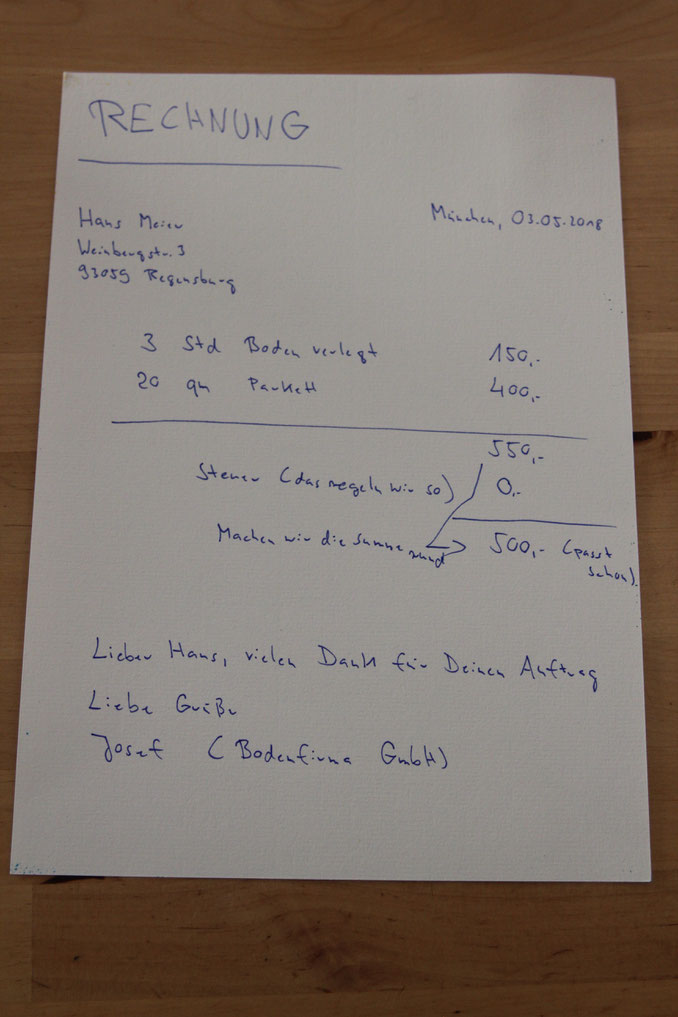 RECHNUNG
München, 03.05.2018
Hans Meier
Weinbergstr. 3
93059 Regensburg
3 Std Boden verlegt 150,-
20 qm Parkett 400,-
550,-
Steuer (das regeln wir so) 0,-
Machen wir die Summe rund 500,- (passt
schon).
Lieber Hans, vielen Dank für Deinen Auftrag
Liebe Grüße
Josef (Bodenfirma GmbH)